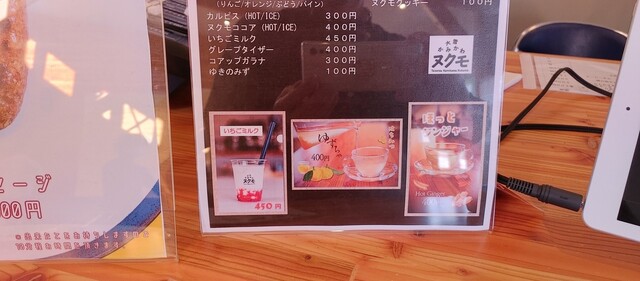 (りんご/オレンジ/ぶどう/パイン)
カルピス(HOT/ICE) 300円
ヌクモココア(HOT/ICE) 400円
いちごミルク 450円
グレープタイザー 400円
コアップガラナ 300円
ゆきのみず 100円
ヌクモクッキー 100円
ヌクモ
いちごミルク
ヌクモ
450円
ゆず
400円
ほっと
ジンジャー
セージ
00円